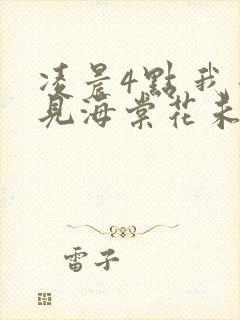 凌晨4點我
見海棠花未
雷子